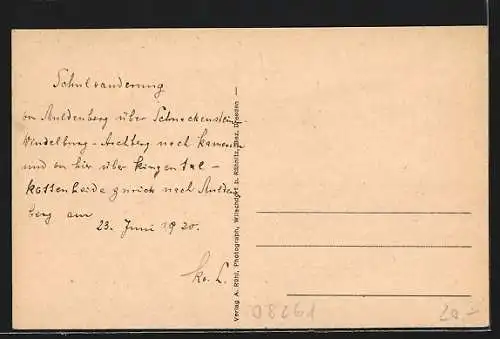 Schulwanderung
von Muldenberg über Schneckenstein -
Windelburg - Aschberg nach Kamerun
und von hier über Klingental -
Kottenheide zurück nach Mulden
berg am
23. Juni 1920.
Verlag A. Rühl, Photograph, Wilschdorf b. Rähnitz, Bez. Dresden —
08261
20.-